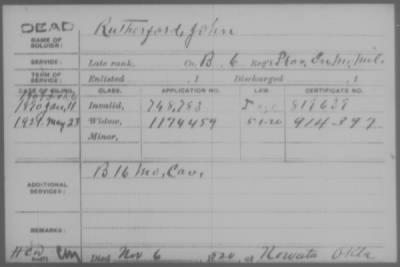 DEAD
NAME OF SOLDIER: Rutherford, John
SERVICE: Late rank, Co. B, 6 Reg't Prov. En. Mo. Mil.
TERM OF SERVICE: Enlisted , 1 Discharged , 1
DATE OF FILING. CLASS. APPLICATION NO. LAW. CERTIFICATE NO.
1890 Jan, 11 Invalid,
1921, May 23 Widow, 1174459 5-1-20 914397
Minor,
B 16 Mo, Cav,
ADDITIONAL SERVICES:
REMARKS:
Died Nov 6, 1920, at Nowata Okla